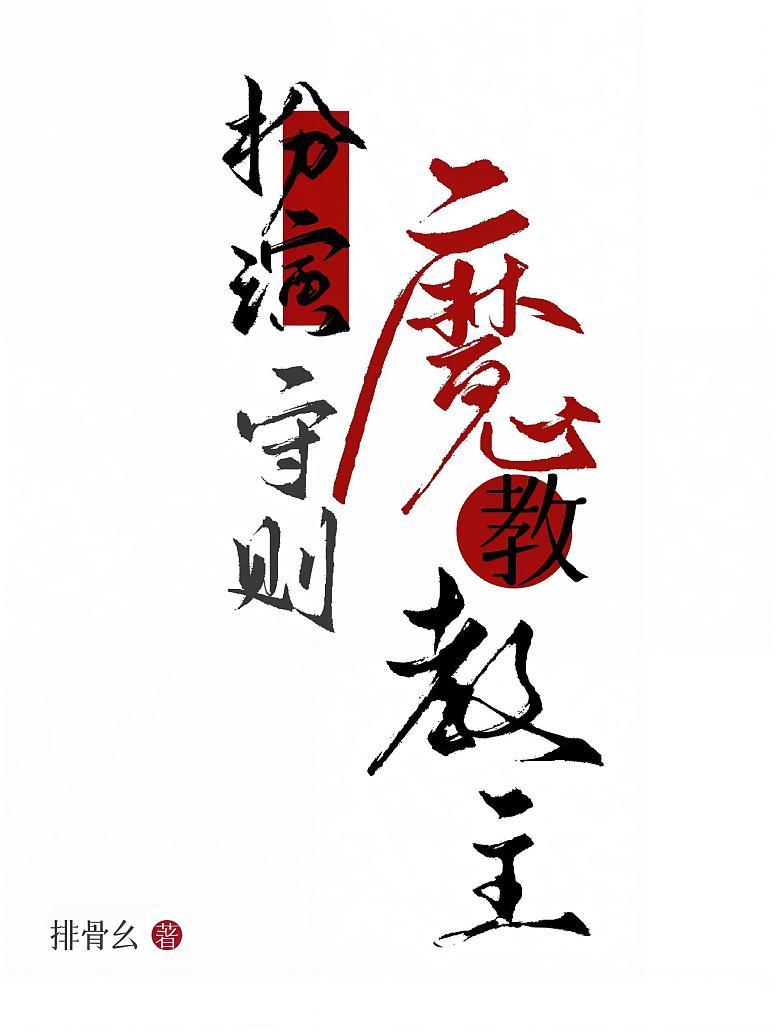 魔教教主
扮演守则
排骨幺 著